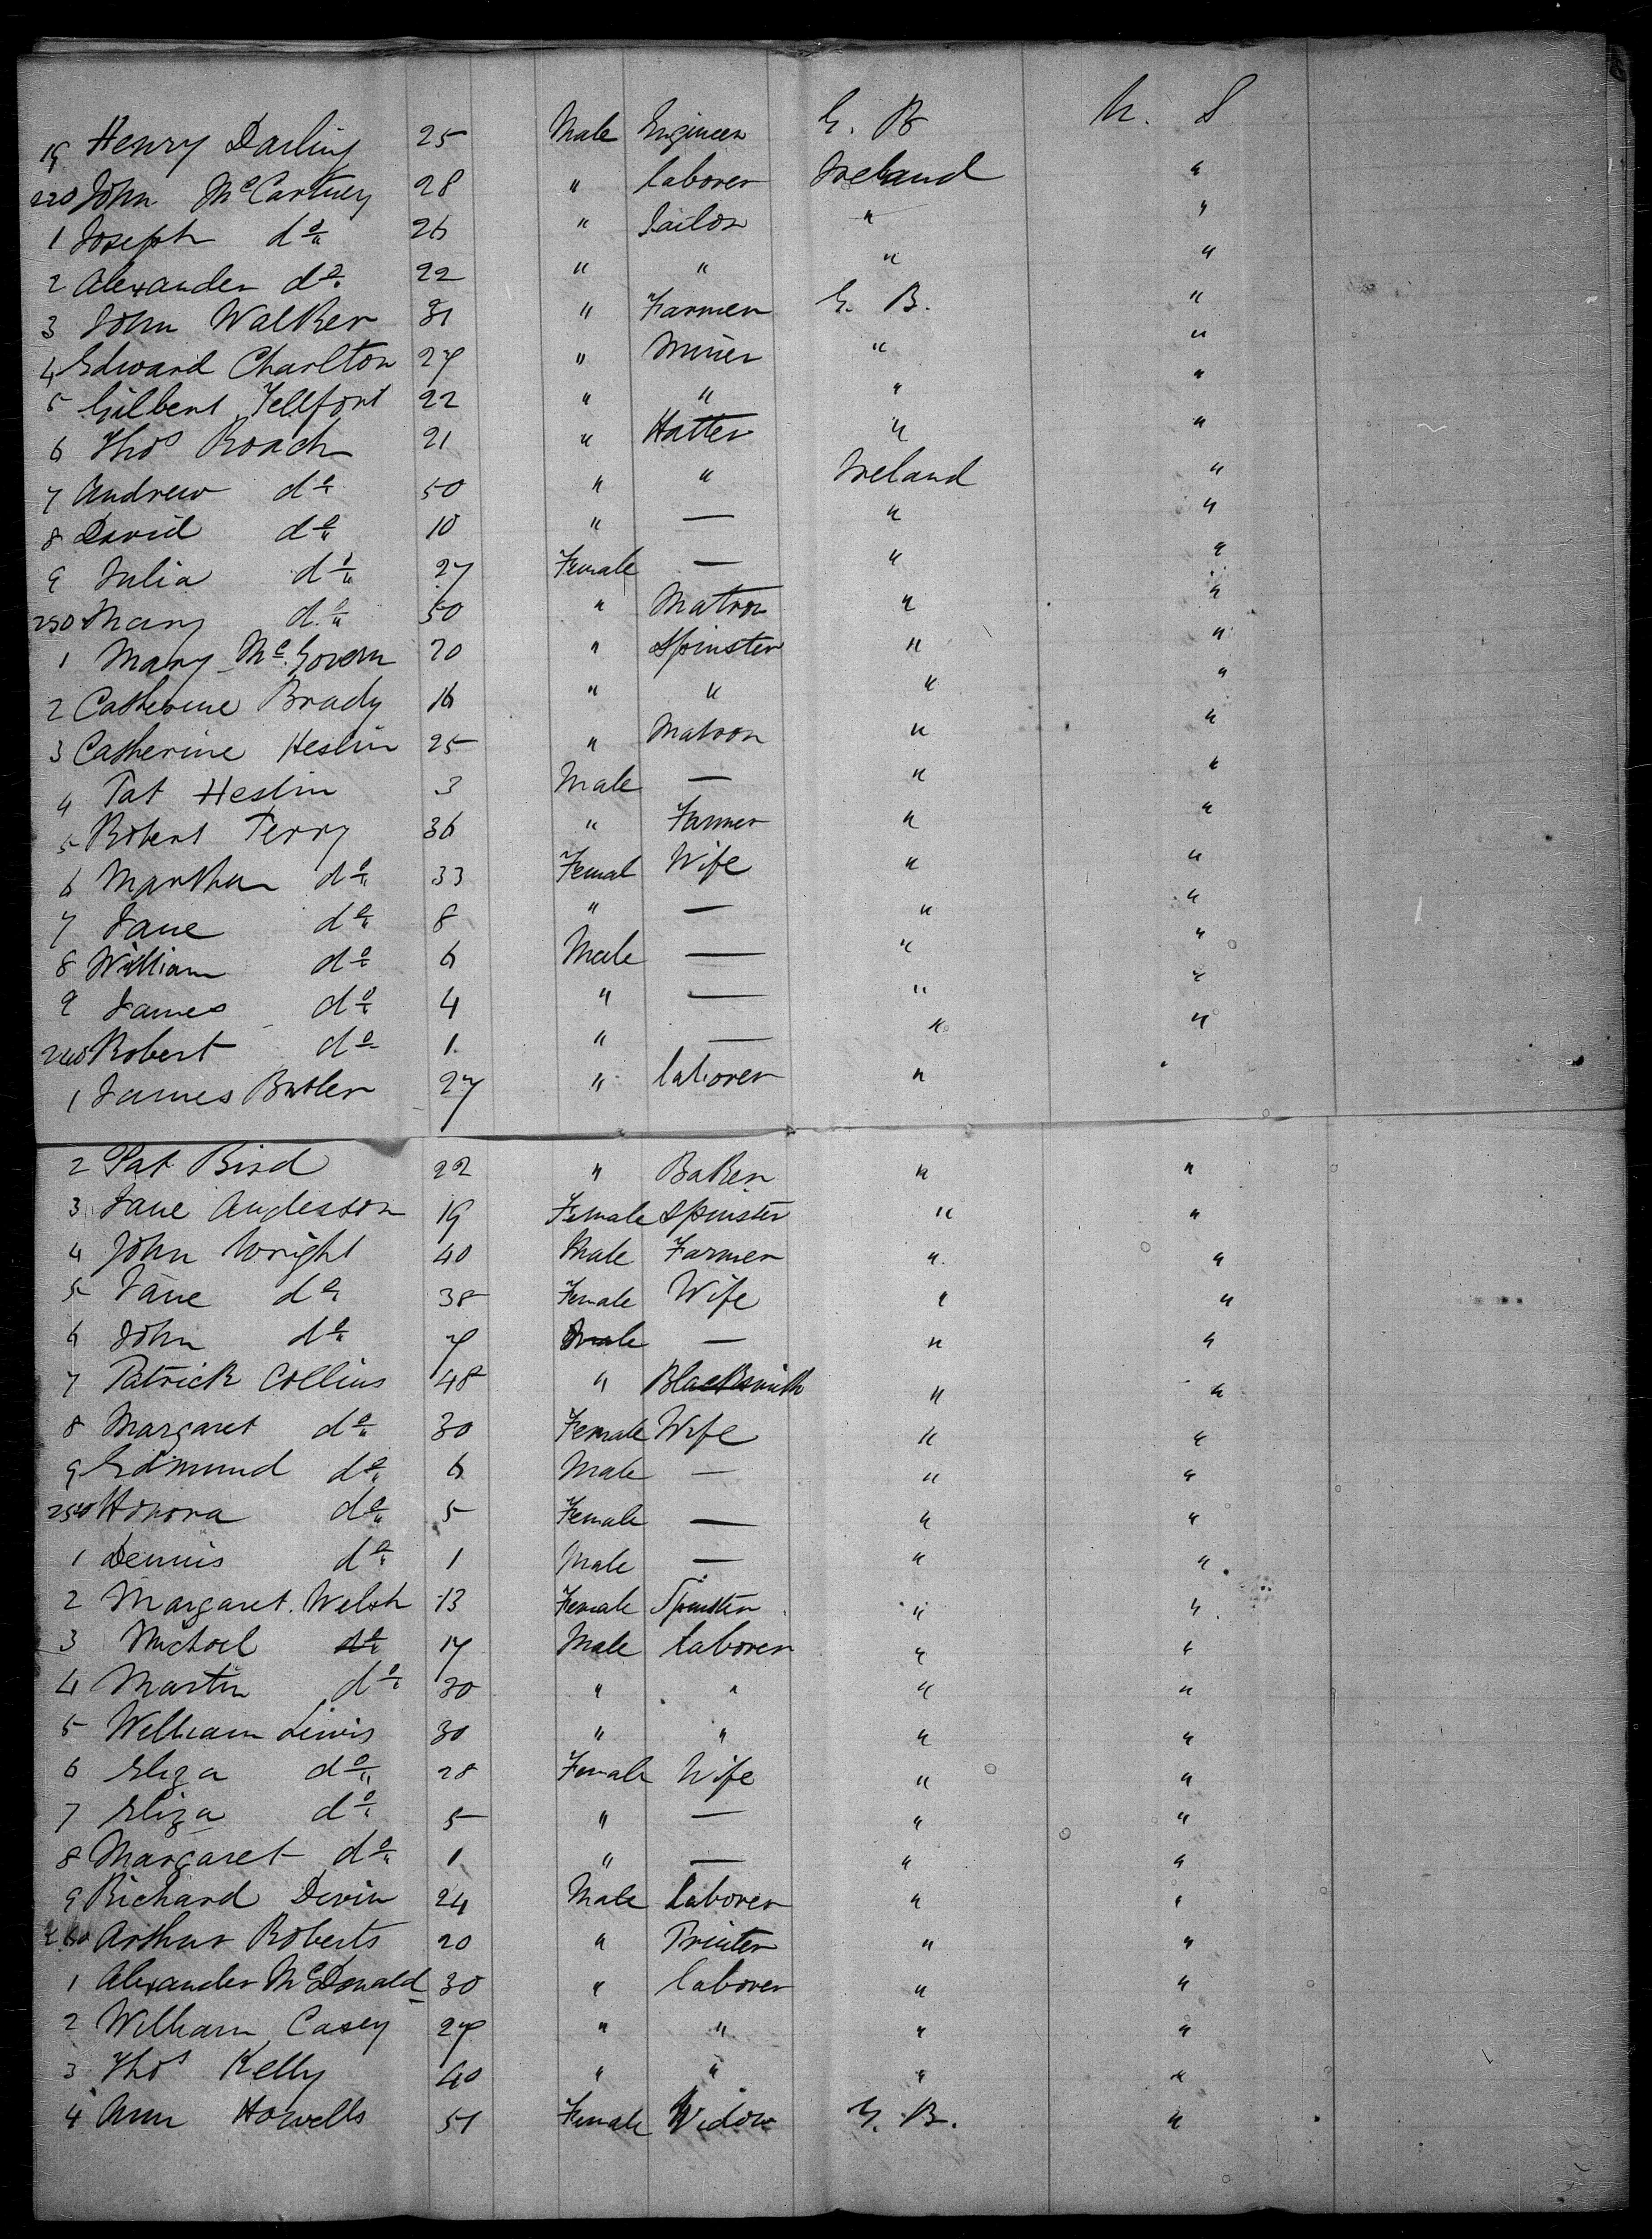 19 Henry Darling 25 Male Engineer G. B U. S
220 John McCartney 28 " laborer Ireland "
1 Joseph do 26 " Sailor " "
2 Alexander do 22 " " " "
3 John Walker 31 " Farmer G. B. "
4 Edward Charlton 27 " Miner " "
5 Gilbert Tellfort 22 " " " "
6 Thos Roach 21 " Hatter " "
7 Andrew do 50 " " Ireland "
8 David do 10 " — " "
9 Julia do 27 Female — " "
230 Mary do 50 " Matron " "
1 Mary McGovern 20 " Spinster " "
2 Catherine Brady 16 " " " "
3 Catherine Heslin 25 " Matron " "
4 Pat Heslin 3 Male — " "
5 Robert Perry 36 " Farmer " "
6 Martha do 33 Femal Wife " "
7 Jane do 8 " — " "
8 William do 6 Male — " "
9 James do 4 " — " "
240 Robert do 1 " — " "
1 James Butler 27 " laborer " "
2 Pat Bird 22 " Baker " "
3 Jane Anderson 19 Female Spinster " "
4 John Wright 40 Male Farmer " "
5 Jane do 38 Female Wife " "
6 John do 7 Male — " "
7 Patrick Collins 48 " Blacksmith " "
8 Margaret do 30 Female Wife " "
9 Edmund do 6 Male — " "
250 Honora do 5 Female — " "
1 Dennis do 1 Male — " "
2 Margaret Welsh 13 Female Spinster " "
3 Michael do 17 Male laborer " "
4 Martin do 30 " " " "
5 William Lewis 30 " " " "
6 Eliza do 28 Female Wife " "
7 Eliza do 5 " — " "
8 Margaret do 1 " — " "
9 Richard Devin 24 Male laborer " "
260 Arthur Roberts 20 " Printer " "
1 Alexander McDonald 30 " laborer " "
2 William Casey 27 " " " "
3 Thos Kelly 40 " " " "
4 Ann Howells 51 Female Widow G. B. "